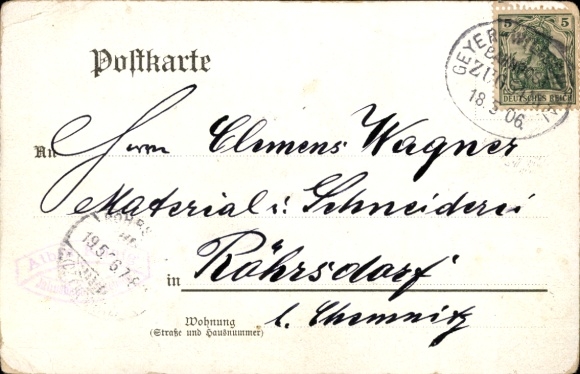 Postkarte
5 5
DEUTSCHES REICH
GEYER
BAHNP.
ZUG
18.5.06.
An Herrn Clemens Wagner
Material i. Schneiderei
in Röhrsdorf
b. Chemnitz
Wohnung
(Straße und Hausnummer)
19.5.